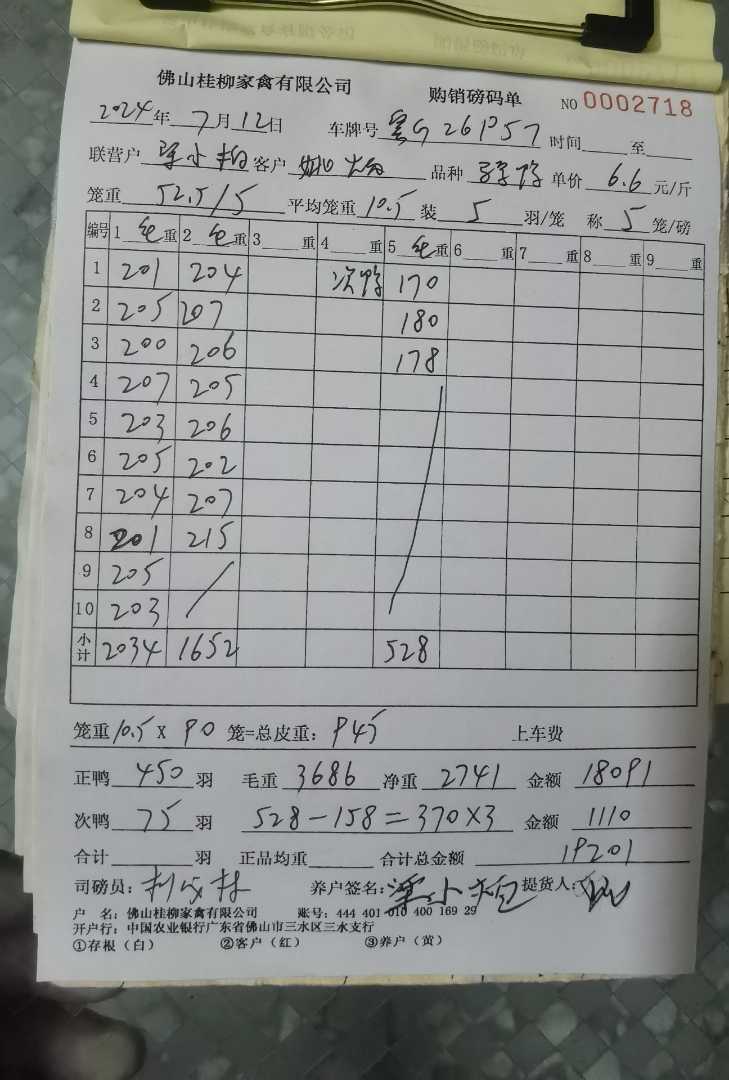 佛山桂柳家禽有限公司 购销磅码单 NO 0002718
2024年 7月12日 车牌号 粤G26P57 时间 至
联营户 梁小 客户 品种 单价 6.6 元/斤
笼重 52.5/5 平均笼重 10.5 装 5 羽/笼 称 5 笼/磅
编号 1 毛重 2 毛重 3 重 4 重 5 毛重 6 重 7 重 8 重 9 重
1 201 204 次鸭 170
2 205 207 180
3 200 206 178
4 207 205
5 203 206
6 205 202
7 204 207
8 201 215
9 205
10 203
小计 2034 1652 528
笼重 10.5 X 90 笼=总皮重: 945 上车费
正鸭 450 羽 毛重 3686 净重 2741 金额 18091
次鸭 75 羽 528-158=370X3 金额 1110
合计 羽 正品均重 合计总金额 19201
司磅员: 养户签名: 梁小 提货人:
户 名: 佛山桂柳家禽有限公司 账号: 444 401 010 400 169 29
开户行: 中国农业银行广东省佛山市三水区三水支行
①存根（白） ②客户（红） ③养户（黄）